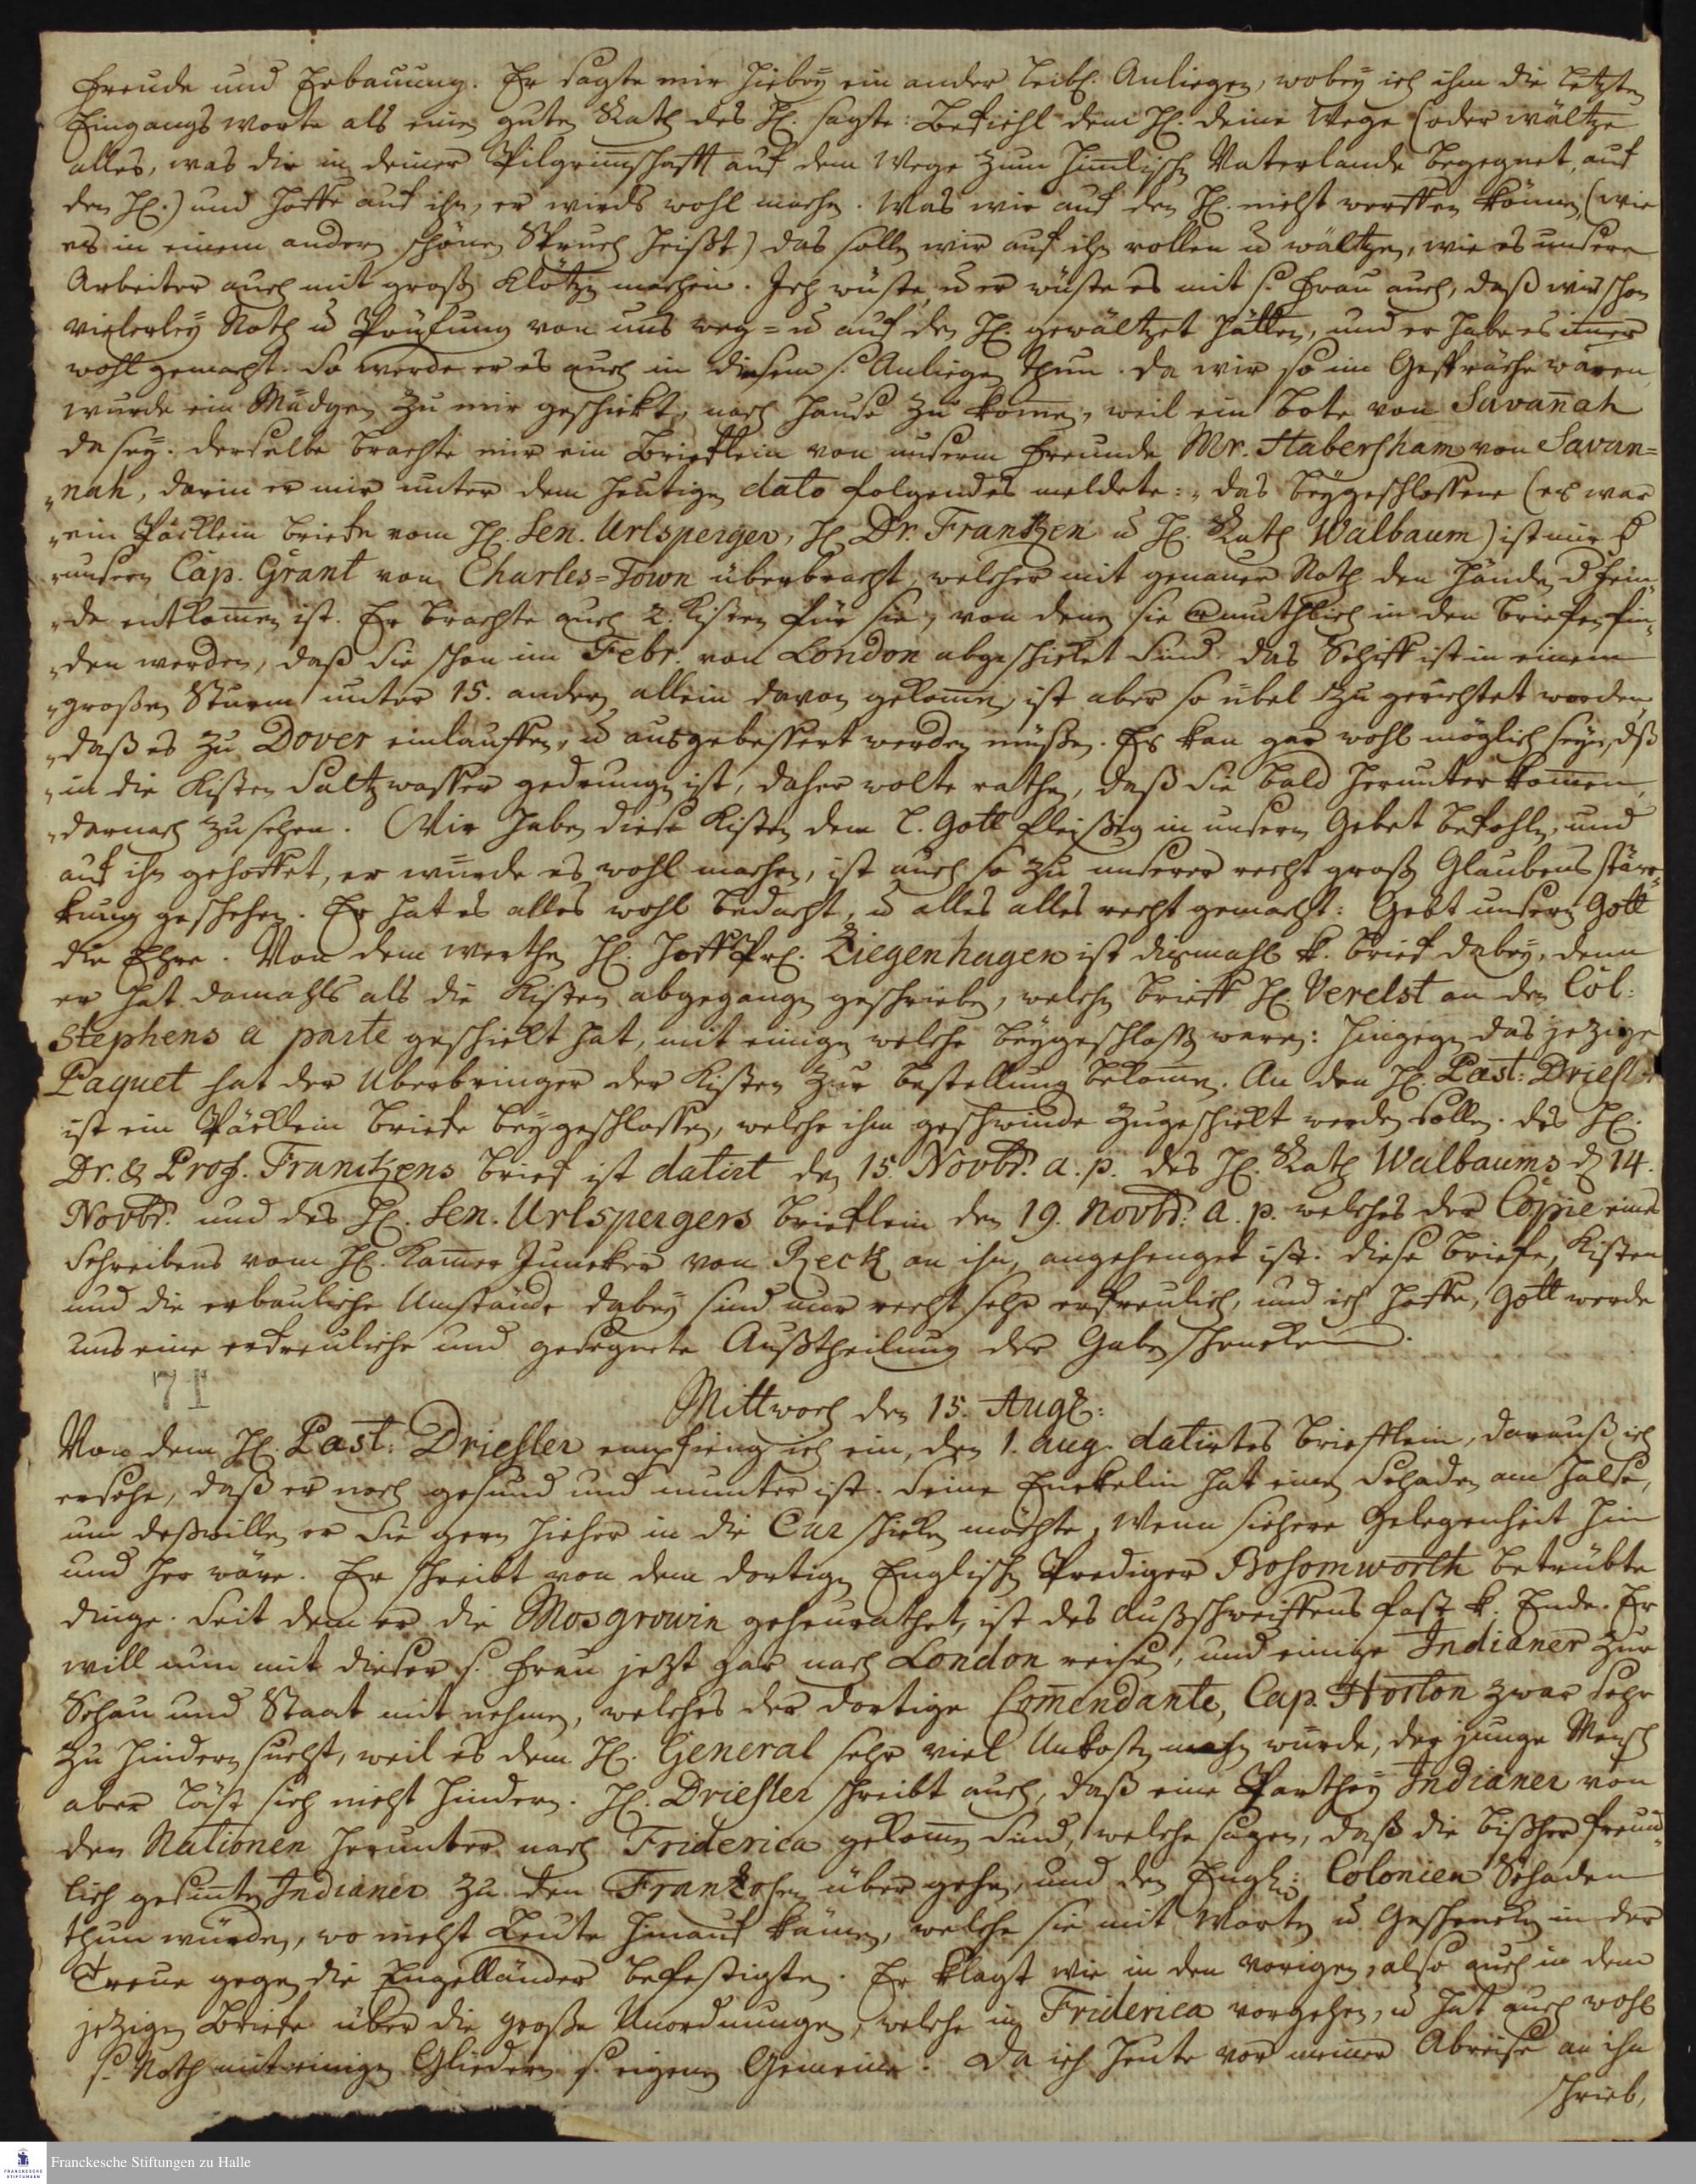 Freude und Erbauung. Er sagte mir hiebey ein ander leibl. Anliegen, wobey ich ihm die letzten
Eingangs worte als einen guten Rath des H. sagte: Befiehl dem H. deine Wege (oder wältze
alles, was dir in deiner Pilgrimschafft auf dem Wege zum himlischen Vaterlande begegnet, auf
den H.) und hoffe auf ihn, er wirds wohl machen. Was wir auf den H. nicht werffen können, (wie
es in einem andern schönen Spruch heißt) das sollen wir auf ihn rollen u wältzen, wie es unsere
Arbeiter auch mit großen Klötzen machen. Ich wüste, u er wüste es mit s. Frau auch, daß wir schon
vielerley Noth u Prüfung von uns weg= u auf den H. gewältzet hätten, und er habe es imer
wohl gemacht. So werde er es auch in diesem s. Anliegen thun. Da wir so im Gespräche waren,
wurde ein Mädgen zu mir geschickt, nach Hause zu komen, weil ein Bote von Savanah
da sey. Derselbe brachte mir ein Brieflein von unserm Freunde Mr. Habersham von Savan=
„nah, darin er mir unter dem heutigen dato folgendes meldete: „das beygeschlossene (es war
„ein Päcklein Briefe vom H. Sen. Urlsperger, H. Dr. Francken u H. Rath Walbaum) ist mir d
„unsern Cap. Grant von Charles=Town überbracht, welcher mit genauer Noth den Händen d Fein„
„de entkomen ist. Er brachte auch 2. Kisten für sie, von denen sie vermuthlich in den Briefen fin„
„den werden, daß sie schon im Febr. von London abgeschickt sind. Das Schiff ist in einem
„großen Sturm unter 15. andern allein davon gekomen, ist aber so übel zu gerichtet worden,
„daß es zu Dover einlauffen, u ausgebessert werden müßen. Es kan gar wohl möglich seyn, dß
„in die Kisten Saltzwasser gedrungen ist, daher wolte rathen, daß sie bald herunter komen,
„darnach zu sehen. Wir haben diese Kisten dem l. Gott fleißig in unserm Gebet befohlen, und
auf ihn gehoffet, er würde es wohl machen, ist auch so zu unserer recht großen Glaubens stär„
kung geschehen. Er hat es alles wohl bedacht, u alles alles recht gemacht: Gebt unserm Gott
die Ehre. Von dem werthen H. HoffPr. Ziegenhagen ist dismahl k. Brief dabey, denn
er hat damahls als die Kisten abgegangen geschrieben, welchen Brieff H. Verelst an den Col:
Stephens a parte geschickt hat, mit einigen welche beygeschloßen waren: hingegen das jezige
Paquet hat der Uberbringer der Kisten zur Bestellung bekomen. An den H. Past: Driesler
ist ein Päcklein Briefe beygeschlossen, welche ihm geschwinde zugeschickt werden sollen. Des H.
Dr. & Prof. Franckens Brief ist datirt den 15. Novbr. a. p. des H. Rath Walbaums d 14.
Novbr. und des H. Sen. Urlspergers Brieflein den 19. Novbr. a. p. welches der Copie eines
Schreibens vom H. Kamer Juncker von Reck an ihn, angehenget ist. Diese Briefe, Kisten
und die erbauliche Umstände dabey sind mir recht sehr erfreulich, und ich hoffe, Gott werde
uns eine erfreuliche und gesegnete Außtheilung der Gaben schencken.
71
Mittwoch den 15. Aug:
Von dem H. Past: Driesler empfieng ich ein, den 1. Aug. datirtes Brieflein, darauß ich
ersehe, daß er noch gesund und munter ist. Seine Enckelin hat einen Schaden am Halse,
um deßwillen er sie gern hieher in die Cur schicken möchte, wenn sichere Gelegenheit hin
und her wäre. Er schreibt von dem dortigen Englischen Prediger Bosomworth betrübte
Dinge. Seit dem er die Mosgrowin geheurathet, ist des Außschweiffens fast k. Ende. Er
will nun mit dieser s. Frau jetzt gar nach London reisen, und einige Indianer zur
Schau und Staat mit nehmen, welches der dortige Comendante, Cap. Horton zwar sehr
zu hindern sucht, weil es dem H. General sehr viel Unkosten machen würde, der junge Mensch
aber läst sich nicht hindern. H. Driesler schreibt auch, daß eine Parthey Indianer von
den Nationen herunter nach Friderica gekomen sind, welche sagen, daß die bißher freund„
lich gesinten Indianer zu den Frantzosen über gehen, und den Engl: Colonien Schaden
thun würden, wo nicht Leute hinauf kämen, welche sie mit Worten u. Geschencken in der
Treue gegen die Engelländer befestigten. Er klagt wie in den vorigen, also auch in dem
jezigen Briefe über die große Unordnungen, welche in Friderica vorgehen, u hat auch wohl
s. Noth mit einigen Gliedern s. eigenen Gemeine. Da ich heute vor meiner Abreise an ihn
schrieb,
FRANCKESCHE STIFTUNGEN
Franckesche Stiftungen zu Halle